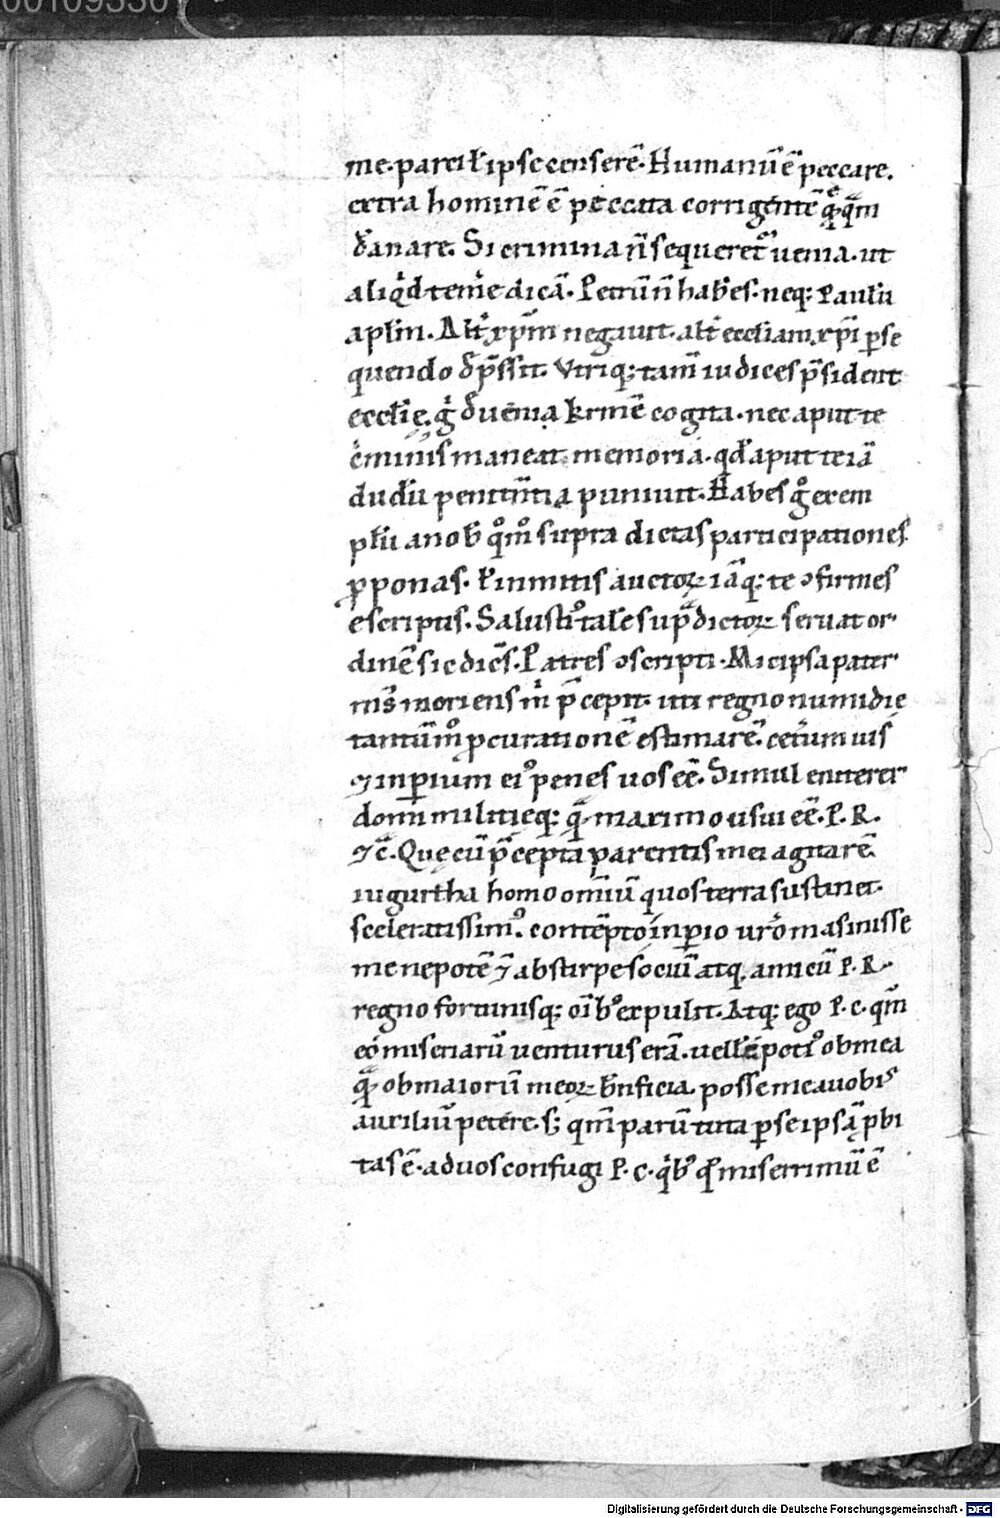 00109330
me. parci ł ipse censerē. Humanū ē peccare.
extra hominē ē peccata corrigentē q̄quā
dānare. Si crimina n̄ sequeret᷑ uenia. ut
aliqͥd temͤe dicā. Petrū n̄ hab̄es. neq; Paułū
apłm. Alt᷑ xp̄m negauit. alt᷑ ecctiam xp̄i ꝑse
quendo dep̄ssit. Vtriq; tam̄ iudices p̄sident
eccłię. gͥ d̄ uenia kr̄mē cogita. nec aput te
c̄minis maneat memoria. qd̄ aput te iā
dudū penitn̄tia puniuit. Habes gͦ exem
płū a nob̄ qͦm̄ supra dictas participationes
ꝓponas. ł inmitis auctoꝝ iāq; te ɔfirmes
escriptis. Salusti᷒ tałe sup̄dictoꝝ seruat or
dinē sic dicēs. Patres ɔscripti. Micipsa pater
ms̄ moriens m̄ p̄cepit. uti regno numidię
tantūm̊ ꝓcurationē estimarē. cet᷑um ius
⁊ inꝑium ei᷒ penes uos eē̄. Simul eniterer
domi militięq; q̄ maximo usui eē̄. P. R.
⁊c̄. Quę cū p̄cepta parentis mei agitarē.
iugurtha homo omniū quos terra sustinet.
sceleratissim᷒. contēpto inꝑio uro᷑ masinisse
me nepotē ⁊ ab stirpe sociū atq; amicū P. R.
regno fortunisq; oīb᷒ expulit. Atq; ego P. C. qm̄
eo miseriarū uenturus erā. uelłē poti᷒ ob mea
q̄ ob maiorū meoꝝ bn̄ficia posse me a uobis
auxiliū petere. s; qm̄ parū tuta ꝑ se ipsa ꝓbi
tas ē. ad uos confugi P. C. qͥb᷒ qd̄ miserrimū ē
Digitalisierung gefördert durch die Deutsche Forschungsgemeinschaft - DFG